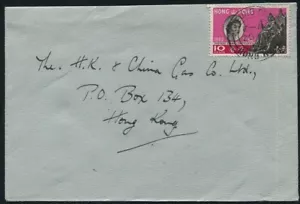 HONG KONG
1962
10
The H.K. & China Gas Co. Ltd.,
P.O. Box 134,
Hong Kong